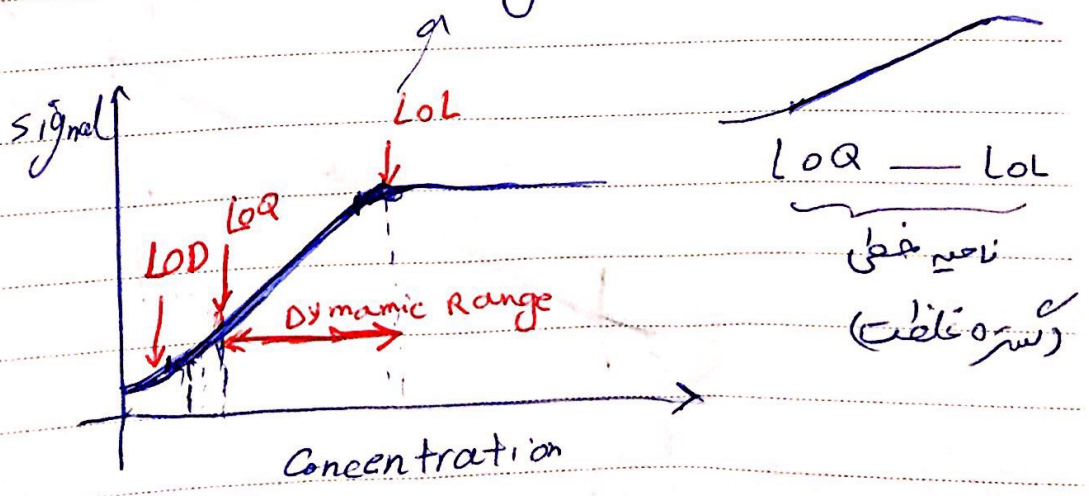 LOL
Signal
LOQ
LOD
Dynamic Range
Concentration
LOQ — LOL
ناحیه خطی
(گستره غلظت)